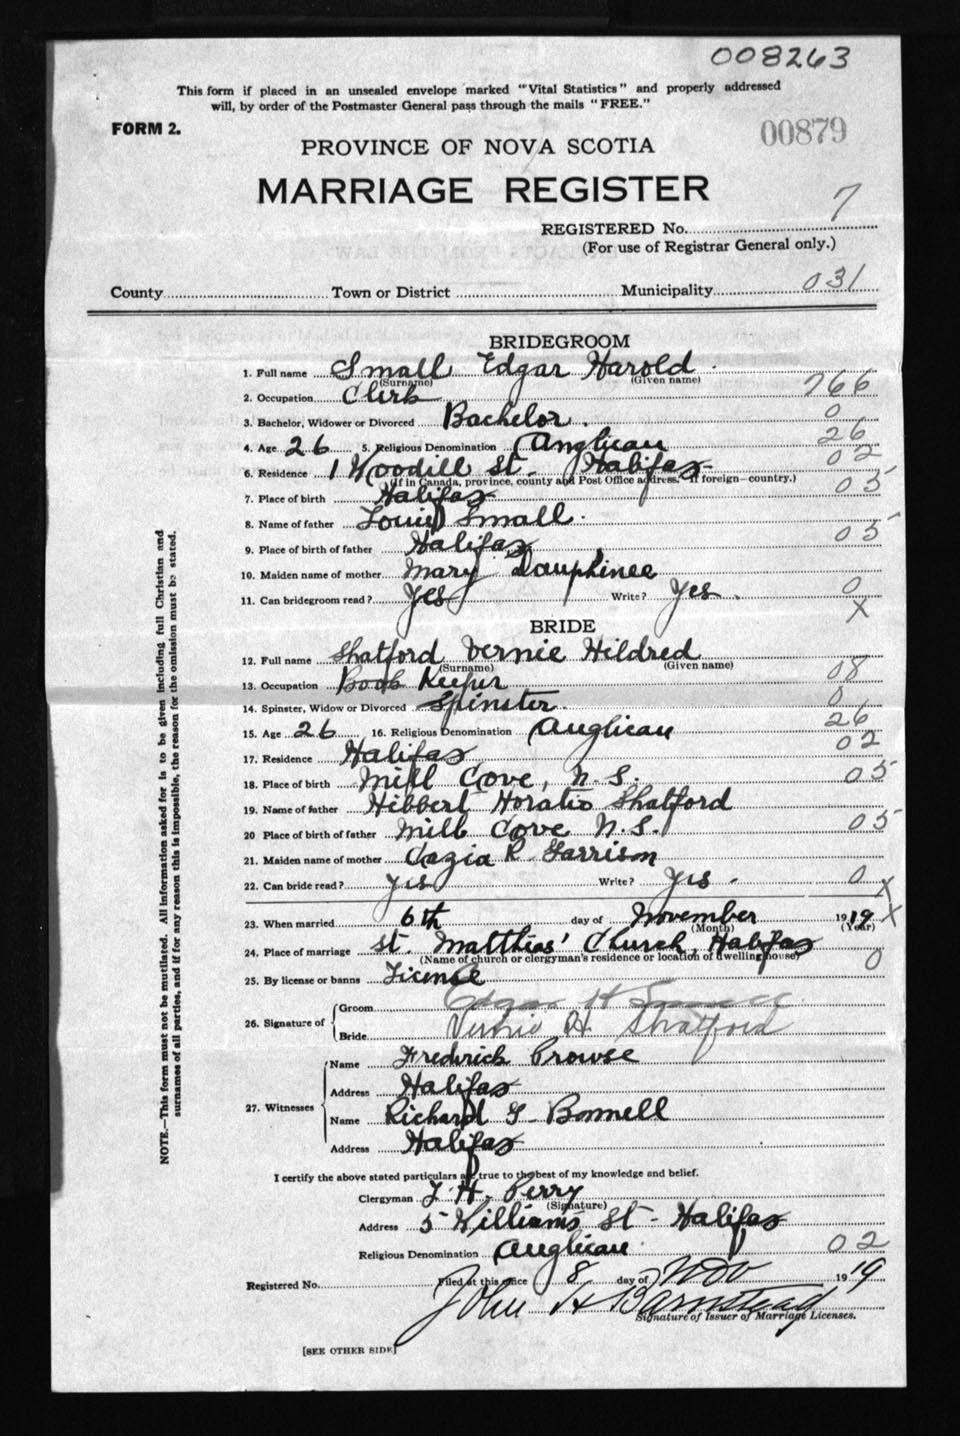 008263
This form if placed in an unsealed envelope marked "Vital Statistics" and properly addressed
will, by order of the Postmaster General pass through the mails "FREE."
FORM 2.
00879
PROVINCE OF NOVA SCOTIA
MARRIAGE REGISTER
7
REGISTERED No.
(For use of Registrar General only.)
County Town or District Municipality 031
BRIDEGROOM
1. Full name Small Edgar Harold
(Surname) (Given name)
2. Occupation Clerk 766
3. Bachelor, Widower or Divorced Bachelor. 0
4. Age 26 5. Religious Denomination Anglican 26
6. Residence 1 Woodill St. Halifax 02
(If in Canada, province, county and Post Office address. If foreign—country.)
7. Place of birth Halifax 05
8. Name of father Louis Small.
9. Place of birth of father Halifax 05
10. Maiden name of mother Mary Dauphinee
11. Can bridegroom read? Yes Write? Yes. 0
X
BRIDE
12. Full name Shatford Vernie Hildred
(Surname) (Given name)
13. Occupation Book Keeper 08
14. Spinster, Widow or Divorced Spinster. 0
15. Age 26 16. Religious Denomination Anglican 26
17. Residence Halifax 02
18. Place of birth Mill Cove, N.S. 05
19. Name of father Hibbert Horatio Shatford
20. Place of birth of father Mill Cove N.S. 05
21. Maiden name of mother Cazia R. Garrison
22. Can bride read? yes Write? yes. 0 X
23. When married 6th day of November 1919 X
(Month) (Year)
24. Place of marriage St. Matthias' Church, Halifax 0
(Name of church or clergyman's residence or location of dwelling house)
25. By license or banns License
26. Signature of Groom Edgar H Small
Bride Vernie H. Shatford
27. Witnesses Name Frederick Prowse
Address Halifax
Name Richard G. Bonnell
Address Halifax
I certify the above stated particulars are true to the best of my knowledge and belief.
Clergyman T. H. Perry
(Signature)
Address 5 Williams St. Halifax
Religious Denomination Anglican 02
Registered No. Filed at this office 8 day of Nov 1919
John H Barnstead
Signature of Issuer of Marriage Licenses.
[SEE OTHER SIDE]
NOTE.—This form must not be mutilated. All information asked for is to be given including full Christian and
surnames of all parties, and if for any reason this is impossible, the reason for the omission must be stated.